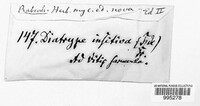 Rabenh. Herb. myc. ed. nova Ed II
147. Diatrype insitiva (Tode)
Fr.
Ad Vitis sarmenta.
995278